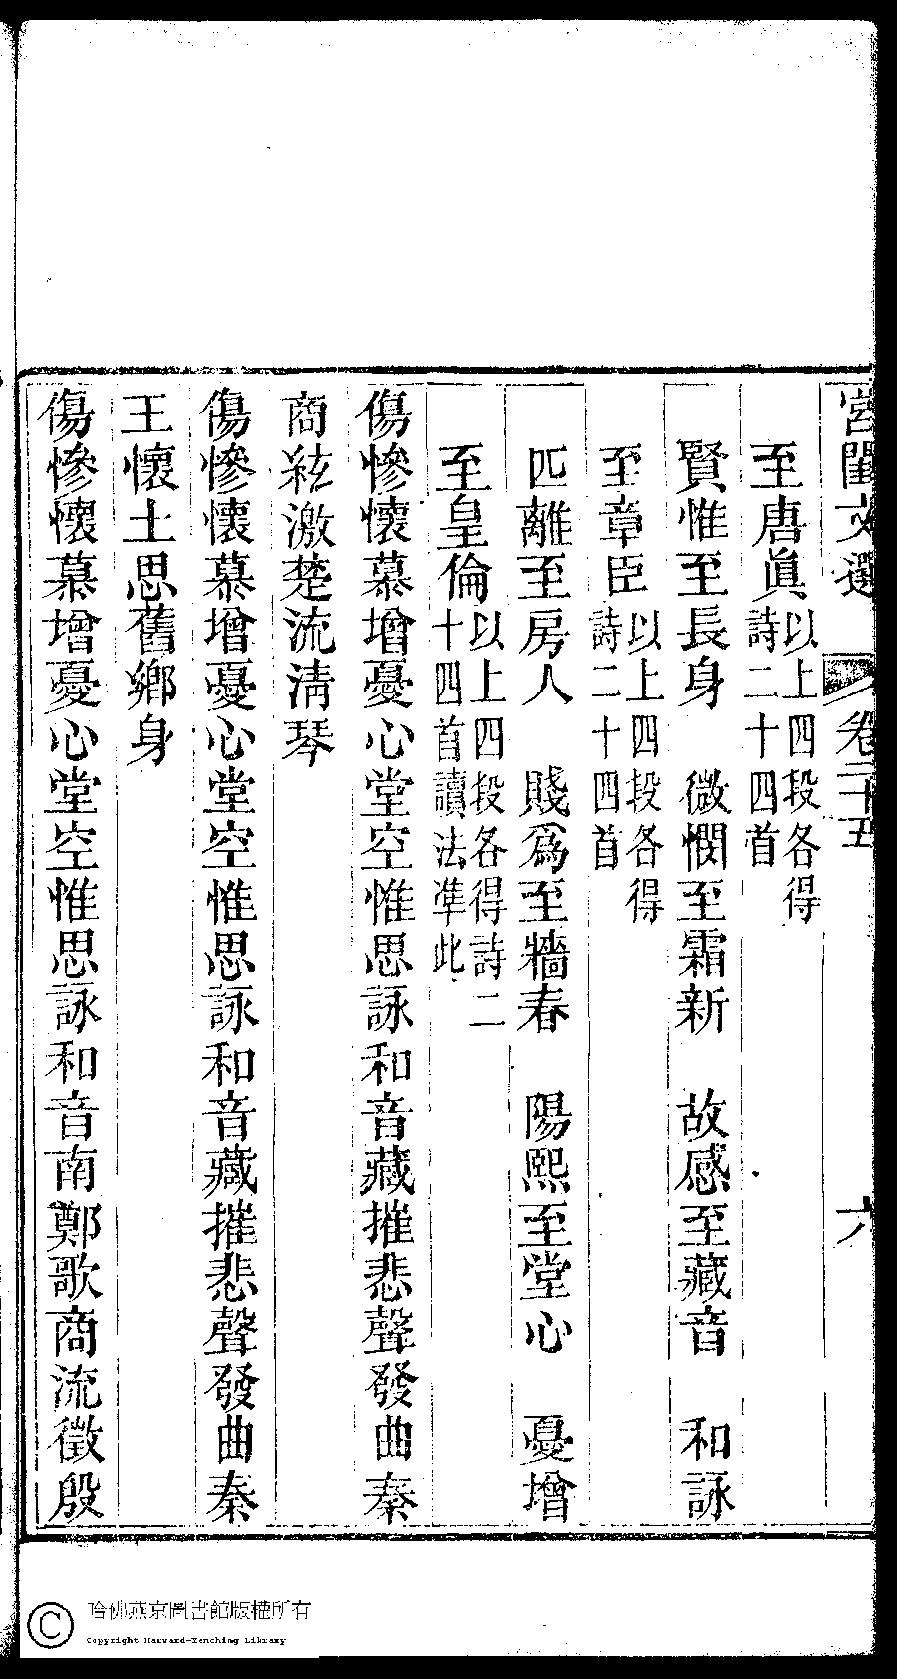 宮閨文選 卷二十五 六
至唐眞以上四段各得詩二十四首
賢惟至長身 微憫至霜新 故感至藏音 和詠
至章臣以上四段各得詩二十四首
匹離至房人 賤爲至牆春 陽熙至堂心 憂增
至皇倫以上四段各得詩二十四首讀法準此
傷慘懷慕增憂心堂空惟思詠和音藏摧悲聲發曲秦
商絃激楚流清琴
傷慘懷慕增憂心堂空惟思詠和音藏摧悲聲發曲秦
王懷土思舊鄉身
傷慘懷慕增憂心堂空惟思詠和音南鄭歌商流徵殷
哈佛燕京圖書館版權所有
Copyright Harvard-Yenching Library